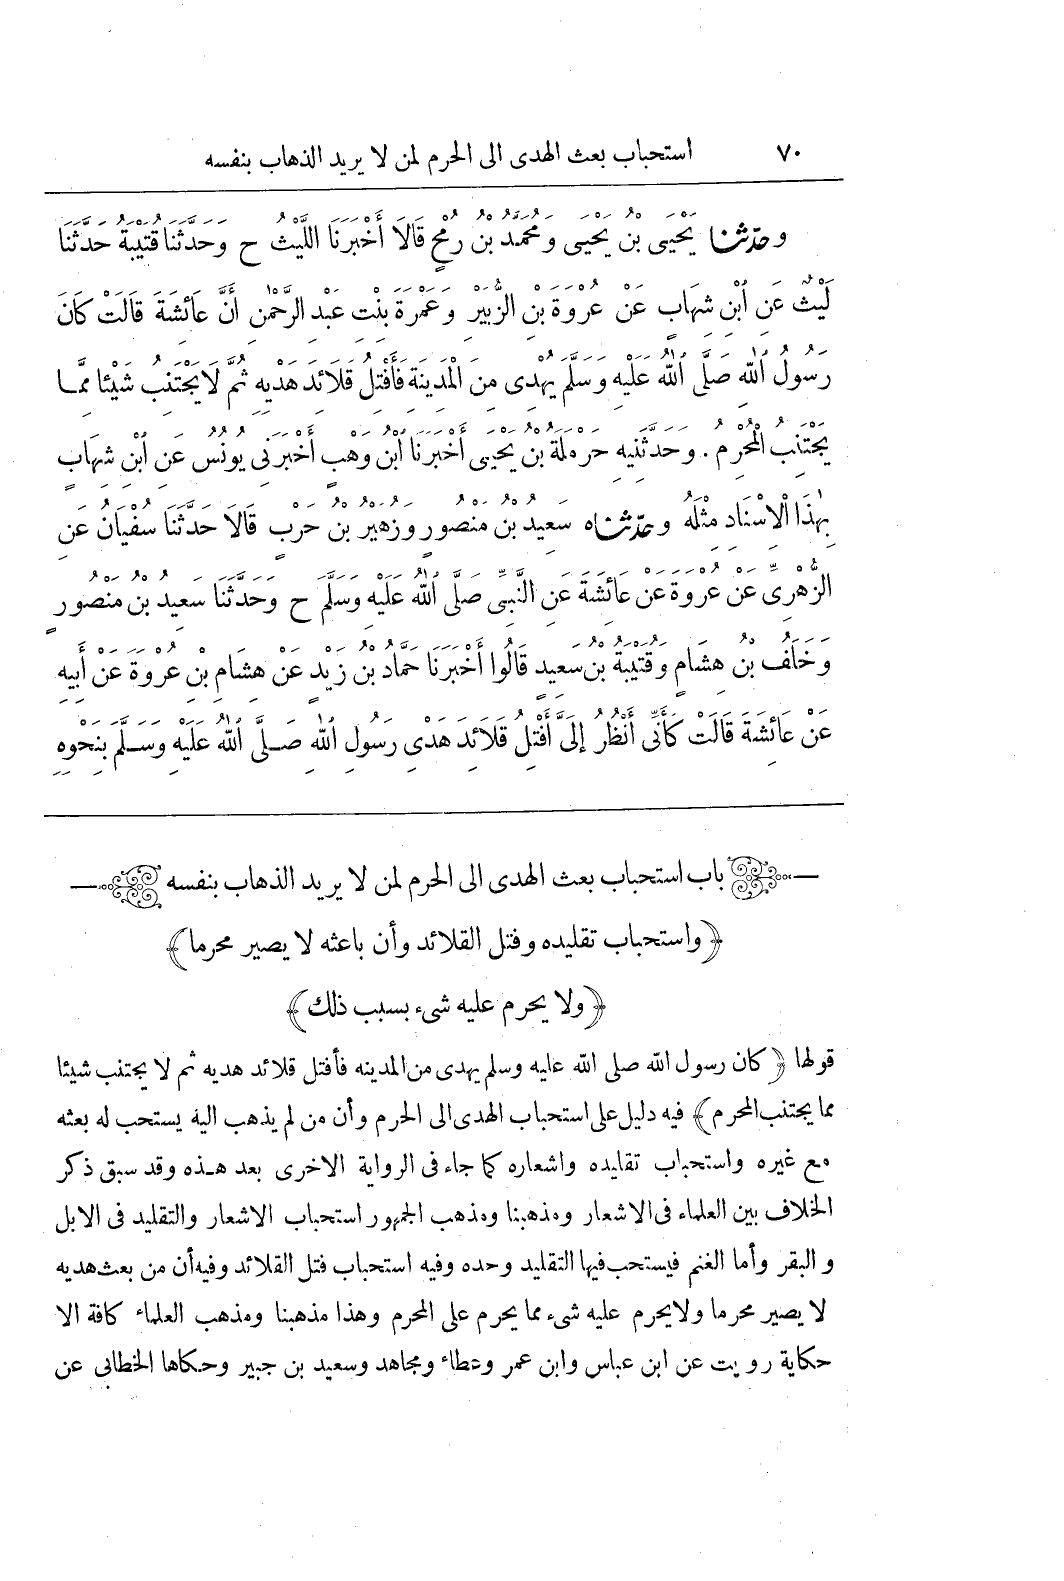 ٧٠ استحباب بعث الهدى الى الحرم لمن لا يريد الذهاب بنفسه
وحَدَّثَنَا يَحْيَى بْنُ يَحْيَى وَمُحَمَّدُ بْنُ رُمْحٍ قَالَا أَخْبَرَنَا اللَّيْثُ ح وَحَدَّثَنَا قُتَيْبَةُ حَدَّثَنَا
لَيْثٌ عَنِ ابْنِ شِهَابٍ عَنْ عُرْوَةَ بْنِ الزُّبَيْرِ وَعَمْرَةَ بِنْتِ عَبْدِ الرَّحْمٰنِ أَنَّ عَائِشَةَ قَالَتْ كَانَ
رَسُولُ اللّٰهِ صَلَّى اللّٰهُ عَلَيْهِ وَسَلَّمَ يُهْدِى مِنَ الْمَدِينَةِ فَأَفْتِلُ قَلَائِدَ هَدْيِهِ ثُمَّ لَا يَجْتَنِبُ شَيْئًا مِمَّا
يَجْتَنِبُ الْمُحْرِمُ . وَحَدَّثَنِيهِ حَرْمَلَةُ بْنُ يَحْيَى أَخْبَرَنَا ابْنُ وَهْبٍ أَخْبَرَنِى يُونُسُ عَنِ ابْنِ شِهَابٍ
بِهٰذَا الْإِسْنَادِ مِثْلَهُ وحَدَّثَنَاه سَعِيدُ بْنُ مَنْصُورٍ وَزُهَيْرُ بْنُ حَرْبٍ قَالَا حَدَّثَنَا سُفْيَانُ عَنِ
الزُّهْرِىِّ عَنْ عُرْوَةَ عَنْ عَائِشَةَ عَنِ النَّبِىِّ صَلَّى اللّٰهُ عَلَيْهِ وَسَلَّمَ ح وَحَدَّثَنَا سَعِيدُ بْنُ مَنْصُورٍ
وَخَلَفُ بْنُ هِشَامٍ وَقُتَيْبَةُ بْنُ سَعِيدٍ قَالُوا أَخْبَرَنَا حَمَّادُ بْنُ زَيْدٍ عَنْ هِشَامِ بْنِ عُرْوَةَ عَنْ أَبِيهِ
عَنْ عَائِشَةَ قَالَتْ كَأَنِّى أَنْظُرُ إِلَىَّ أَفْتِلُ قَلَائِدَ هَدْىِ رَسُولِ اللّٰهِ صَلَّى اللّٰهُ عَلَيْهِ وَسَلَّمَ بِنَحْوِهِ
باب استحباب بعث الهدى الى الحرم لمن لا يريد الذهاب بنفسه
﴿واستحباب تقليده وفتل القلائد وأن باعثه لا يصير محرما﴾
﴿ولا يحرم عليه شىء بسبب ذلك﴾
قولها ﴿كان رسول الله صلى الله عليه وسلم يهدى من المدينه فأفتل قلائد هديه ثم لا يجتنب شيئا
مما يجتنب المحرم﴾ فيه دليل على استحباب الهدى الى الحرم وأن من لم يذهب اليه يستحب له بعثه
مع غيره واستحباب تقليده واشعاره كما جاء فى الرواية الاخرى بعد هذه وقد سبق ذكر
الخلاف بين العلماء فى الاشعار ومذهبنا ومذهب الجمهور استحباب الاشعار والتقليد فى الابل
والبقر وأما الغنم فيستحب فيها التقليد وحده وفيه استحباب فتل القلائد وفيه أن من بعث هديه
لا يصير محرما ولا يحرم عليه شىء مما يحرم على المحرم وهذا مذهبنا ومذهب العلماء كافة الا
حكاية رويت عن ابن عباس وابن عمر وعطاء ومجاهد وسعيد بن جبير وحكاها الخطابى عن